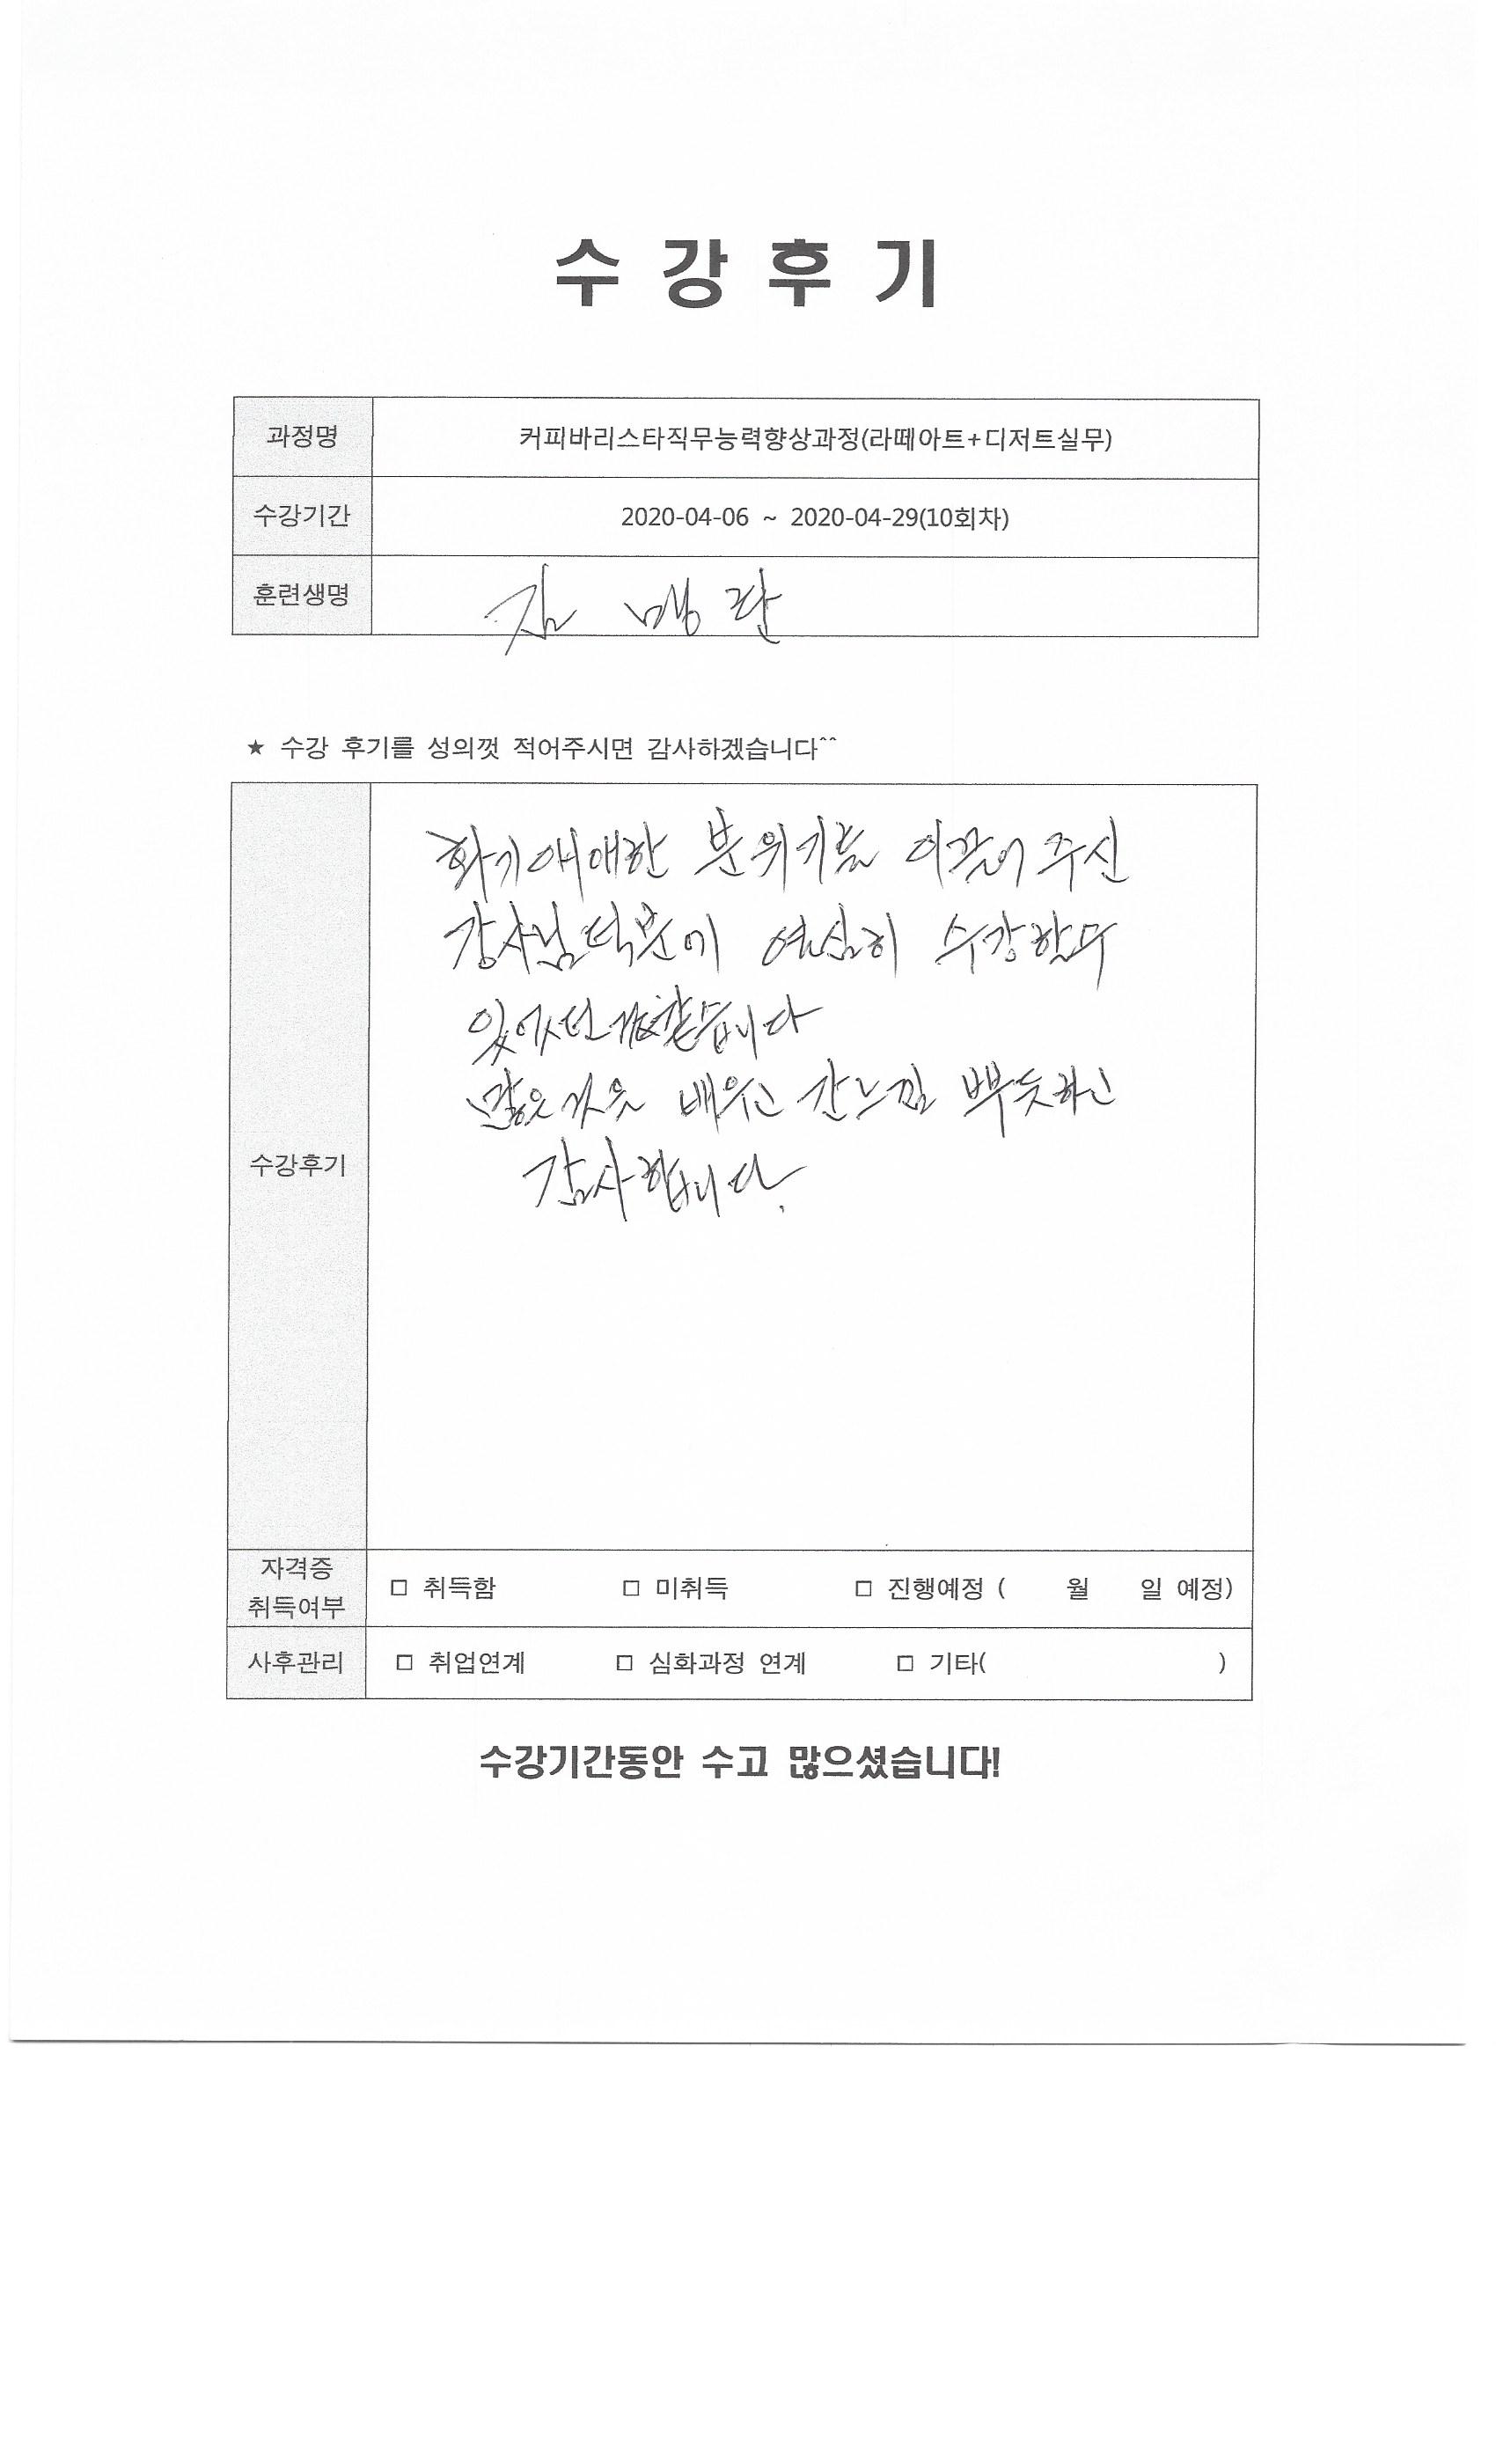 수 강 후 기
과정명 커피바리스타직무능력향상과정(라떼아트+디저트실무)
수강기간 2020-04-06 ~ 2020-04-29(10회차)
훈련생명 김 맹 란
★ 수강 후기를 성의껏 적어주시면 감사하겠습니다^^
화기애애한 분위기를 이끌어 주신
강사님 덕분에 열심히 수강할수
있었던거같습니다
많은것을 배우고 간느낌 뿌듯하고
감사합니다.
수강후기
자격증
취득여부 □ 취득함 □ 미취득 □ 진행예정 ( 월 일 예정)
사후관리 □ 취업연계 □ 심화과정 연계 □ 기타( )
수강기간동안 수고 많으셨습니다!